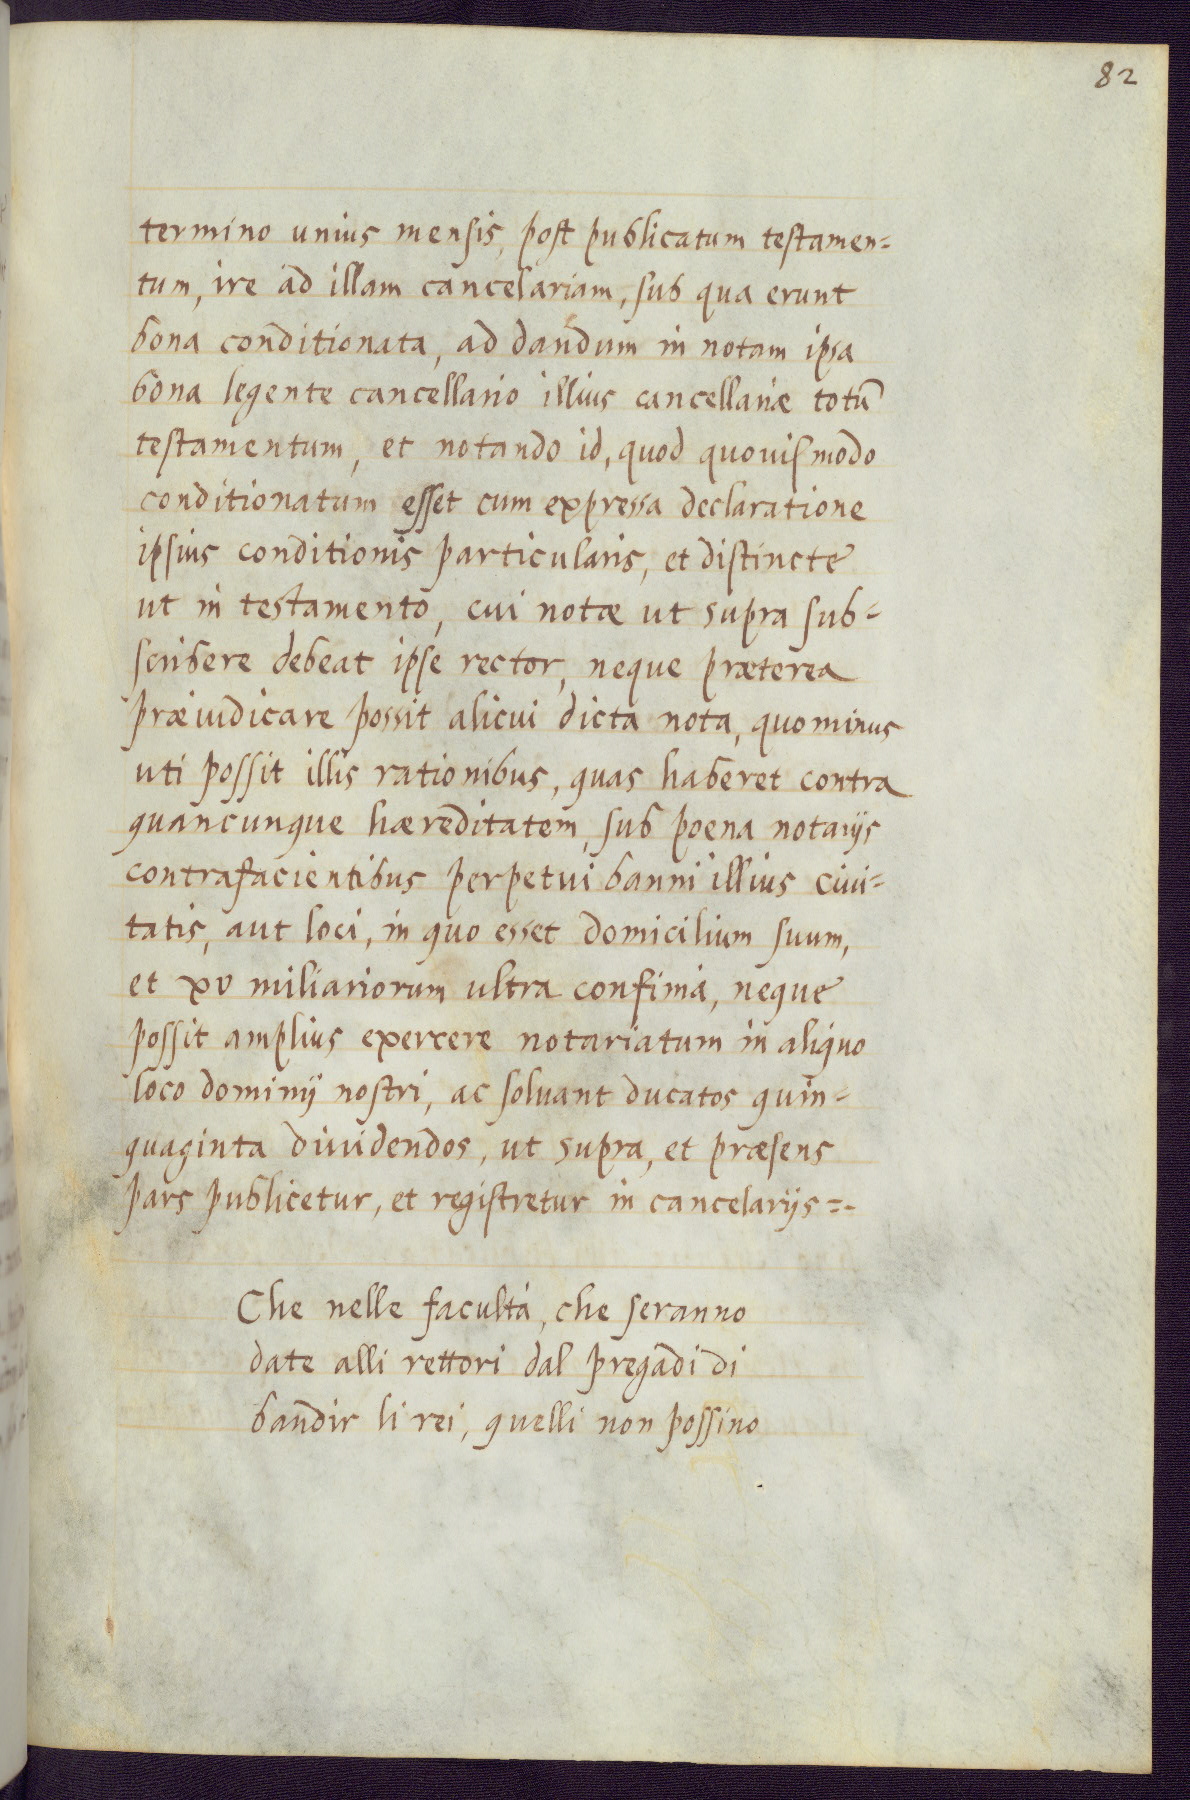 82
termino unius mensis, post publicatum testamen=
tum, ire ad illam cancelariam, sub qua erunt
bona conditionata, ad dandum in notam ipsa
bona legente cancellario illius cancellariæ totū
testamentum, et notando id, quod quovismodo
conditionatum esset cum expressa declaratione
ipsius conditionis particularis, et distincte
ut in testamento, cui notæ ut supra sub=
scribere debeat ipse rector, neque præterea
præiudicare possit alicui dicta nota, quominus
uti possit illis rationibus, quas haberet contra
quancunque hæreditatem, sub poena notarijs
contrafacientibus perpetui banni illius civi=
tatis, aut loci, in quo esset domicilium suum,
et xv miliariorum ultra confinia, neque
possit amplius exercere notariatum in aliquo
loco dominij nostri, ac solvant ducatos quin=
quaginta dividendos, ut supra, et præsens
pars publicetur, et registretur in cancelarijs=-
Che nelle facultà, che seranno
date alli rettori dal pregadi di
bandir li rei, quelli non possino